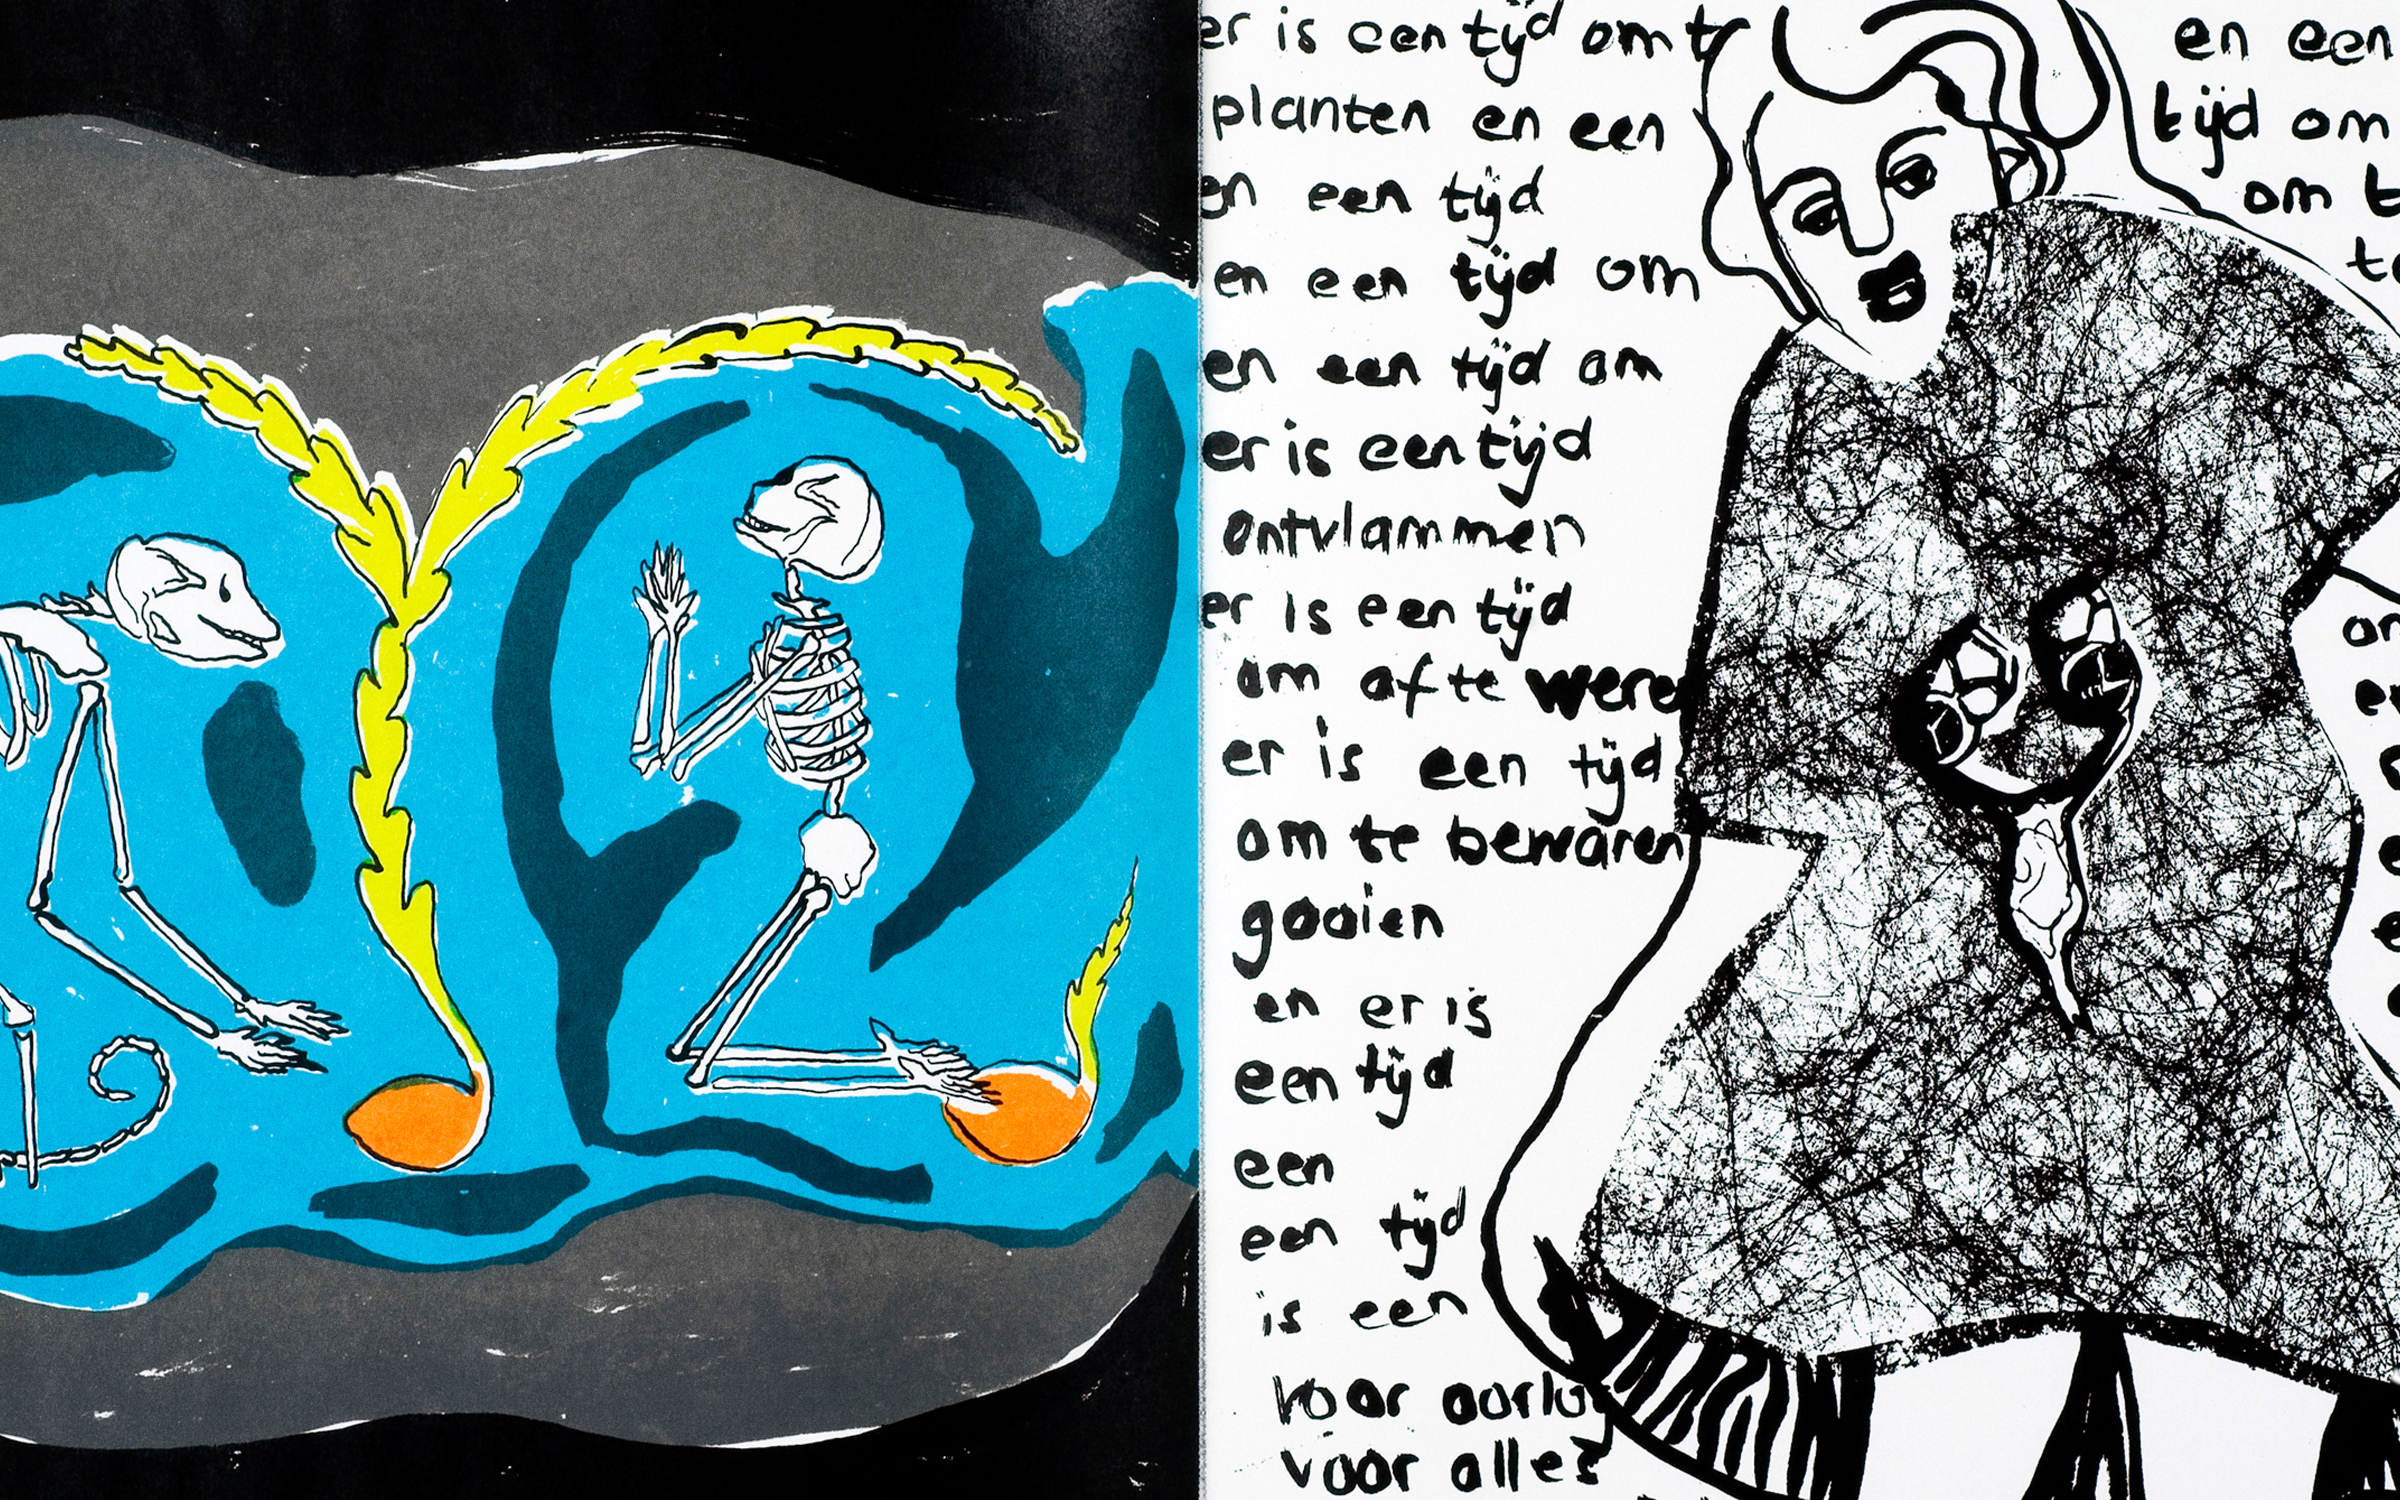 er is een tijd om t
planten en een
en een tijd
en een tijd om
en een tijd om
er is een tijd
ontvlammen
er is een tijd
om af te were
er is een tijd
om te bewaren
gooien
en er is
een tijd
een
een tijd
is een
voor oorlo
voor alles
en een
tijd om
om t